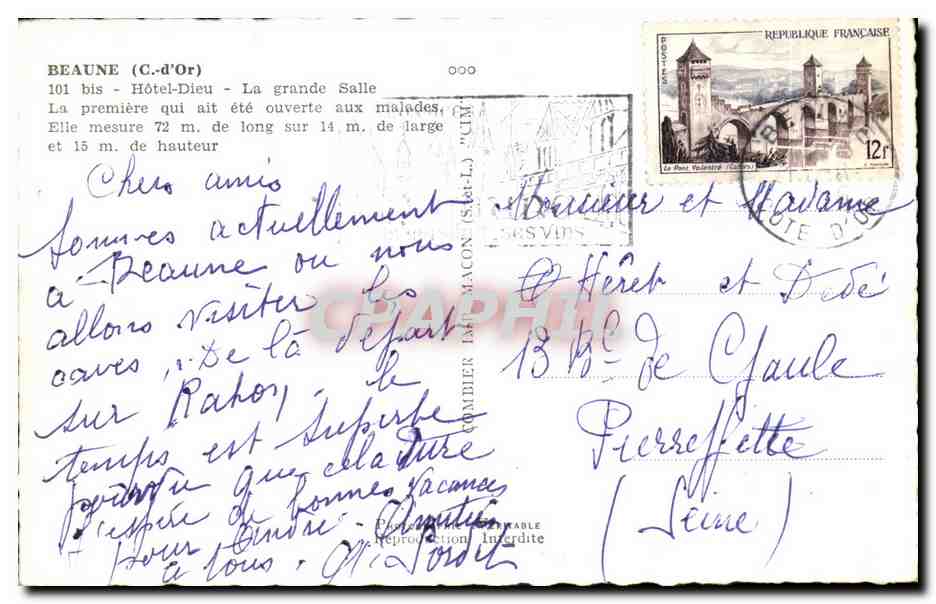 BEAUNE (C.-d'Or)
101 bis - Hôtel-Dieu - La grande Salle
La première qui ait été ouverte aux malades.
Elle mesure 72 m. de long sur 14 m. de large
et 15 m. de hauteur
Chers amis
sommes actuellement
à Beaune ou nous
allons visiter les
caves, De là départ
sur Rahon, le
temps est superbe
pourvu que cela dure
J'espère de bonnes vacances
pour André - Amitiés
à tous.
COMBIER IMP. MACON (S.-et-L.) "CIM"
PHOTOGRAPHIE VÉRITABLE
Reproduction Interdite
REPUBLIQUE FRANÇAISE
POSTES
Le Pont Valentré (Cahors)
12F
CÔTE D'OR
SES VINS
Monsieur et Madame
O Héret et Dédé
13 Bd de Gaule
Pierrefitte
(Seine)
CPAPHIL